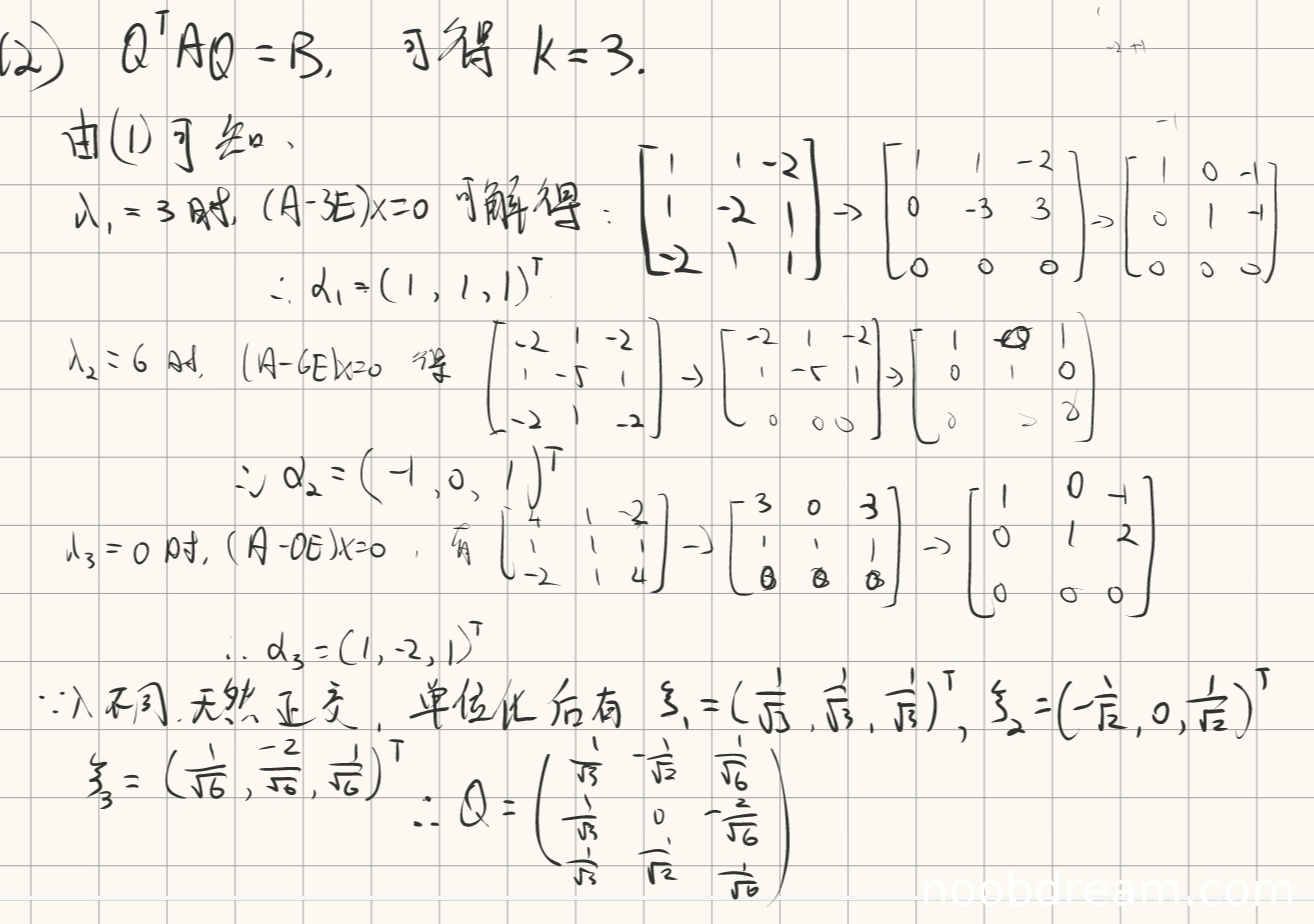 (2) Q^T AQ = B, 可得 k = 3.
由(1)可知、
λ₁ = 3 时, (A-3E)x=0 可解得: [1 1 -2; 1 -2 1; -2 1 1] → [1 1 -2; 0 -3 3; 0 0 0] → [1 0 -1; 0 1 -1; 0 0 0]
∴ α₁ = (1, 1, 1)^T
λ₂ = 6 时, (A-6E)x=0 得 [-2 1 -2; 1 -5 1; -2 1 -2] → [-2 1 -2; 1 -5 1; 0 0 0] → [1 0 1; 0 1 0; 0 0 0]
∴ α₂ = (-1, 0, 1)^T
λ₃ = 0 时, (A-0E)x=0, 有 [4 1 -2; 1 1 1; -2 1 4] → [3 0 -3; 1 1 1; 0 0 0] → [1 0 -1; 0 1 2; 0 0 0]
∴ α₃ = (1, -2, 1)^T
∵ λ不同,天然正交, 单位化后有 ξ₁ = (1/√3, 1/√3, 1/√3)^T, ξ₂ = (-1/√2, 0, 1/√2)^T
ξ₃ = (1/√6, -2/√6, 1/√6)^T ∴ Q = (1/√3 -1/√2 1/√6; 1/√3 0 -2/√6; 1/√3 1/√2 1/√6)
noobdream.com